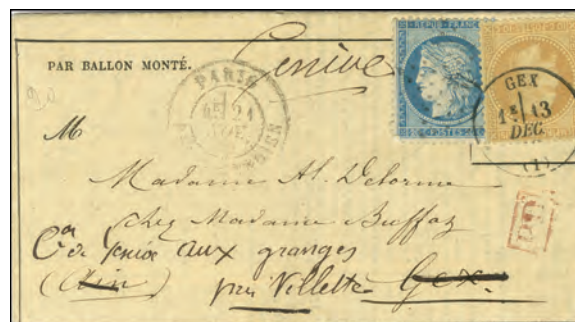 PAR BALLON MONTÉ.
Genève
REPUB. FRANC.
POSTES
PARIS
GEX
13
DEC.
(1)
P.D.
M
Madame Al. Delorme
chez Madame Buffaz
Con de Genève aux granges
(Ain) près Villette Gex.